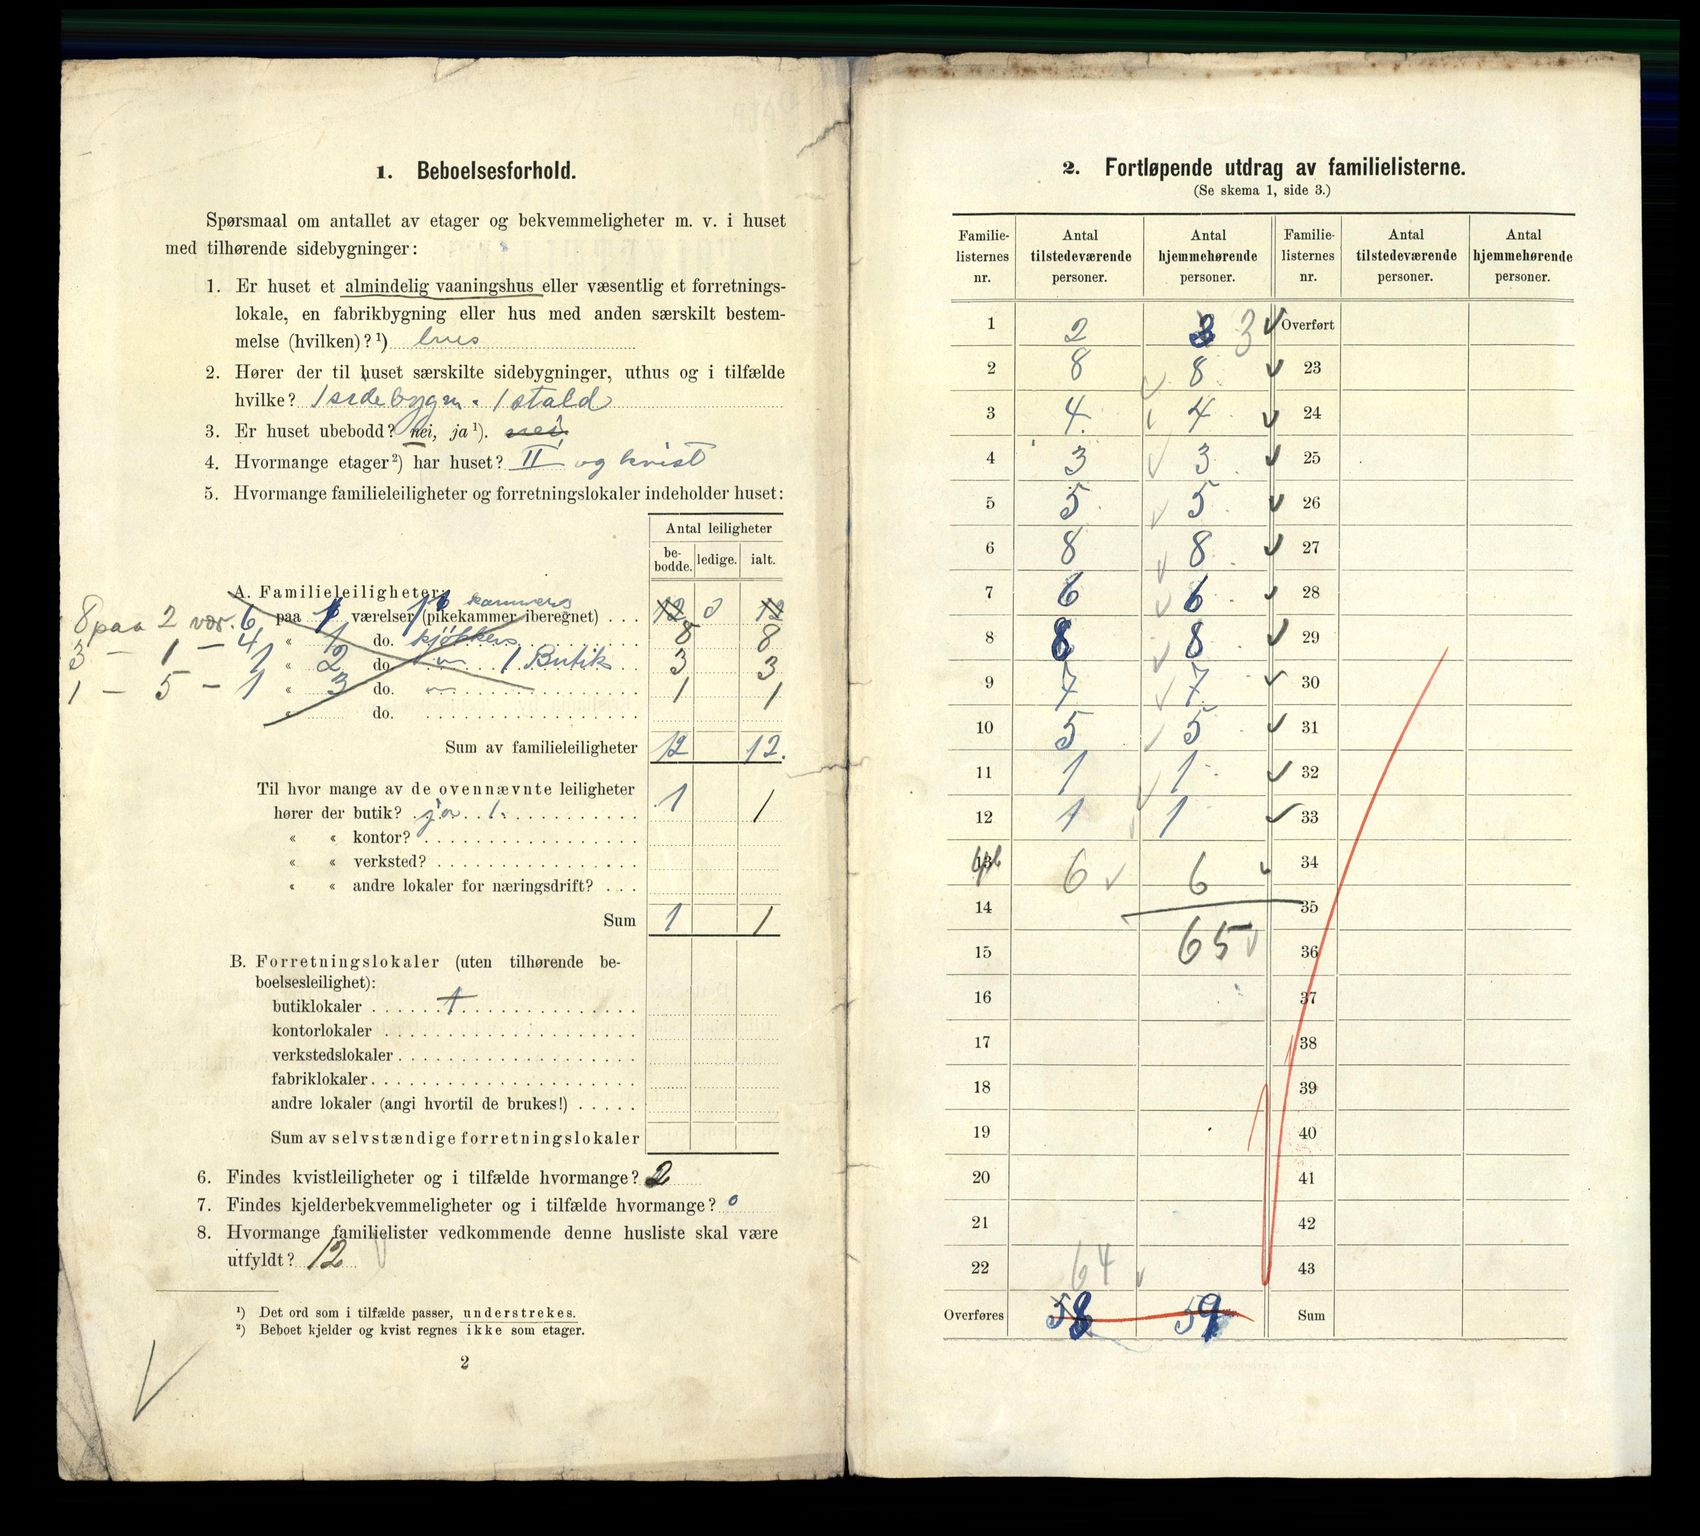 1. Beboelsesforhold.
Spørsmaal om antallet av etager og bekvemmeligheter m. v. i huset
med tilhørende sidebygninger:
1. Er huset et almindelig vaaningshus eller væsentlig et forretnings-
lokale, en fabrikbygning eller hus med anden særskilt bestem-
melse (hvilken)?¹)
2. Hører der til huset særskilte sidebygninger, uthus og i tilfælde
hvilke? 1 sidebygn. 1 stald
3. Er huset ubebodd? nei, ja¹). nei
4. Hvormange etager²) har huset? II og kvist
5. Hvormange familieleiligheter og forretningslokaler indeholder huset:
Antal leiligheter
be-bodde. ledige. ialt.
A. Familieleiligheter:
8 paa 2 vær. 6 paa 1 værelser (pikekammer iberegnet) . . . 12 0 12
3 – 1 – 4 " 1 do. kjøkken 8 8
1 " 2 do. 1 Butik 3 3
1 – 5 – 1 " 3 do. 1 1
" do.
Sum av familieleiligheter 12 12.
Til hvor mange av de ovennævnte leiligheter
hører der butik? ja 1. 1 1
« « kontor?
« « verksted?
« « andre lokaler for næringsdrift? . . .
Sum 1 1
B. Forretningslokaler (uten tilhørende be-
boelsesleilighet):
butiklokaler 1
kontorlokaler
verkstedslokaler
fabriklokaler
andre lokaler (angi hvortil de brukes!)
Sum av selvstændige forretningslokaler
6. Findes kvistleiligheter og i tilfælde hvormange? 2
7. Findes kjelderbekvemmeligheter og i tilfælde hvormange? 0
8. Hvormange familielister vedkommende denne husliste skal være
utfyldt? 12
¹) Det ord som i tilfælde passer, understrekes.
²) Beboet kjelder og kvist regnes ikke som etager.
2
2. Fortløpende utdrag av familielisterne.
(Se skema 1, side 3.)
Familie-listernes nr. Antal tilstedeværende personer. Antal hjemmehørende personer. Familie-listernes nr. Antal tilstedeværende personer. Antal hjemmehørende personer.
1 2 3 3 Overført
2 8 8 23
3 4. 4 24
4 3 3 25
5 5 5 26
6 8 8 27
7 6 6 28
8 8 8 29
9 7 7 30
10 5 5 31
11 1 1 32
12 1 1 33
13 6 6 34
14 35
15 65 36
16 37
17 38
18 39
19 40
20 41
21 42
22 64 43
Overføres 58 59 Sum